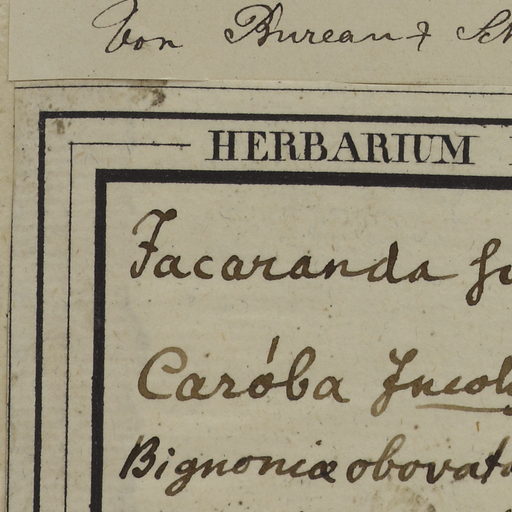 Von Bureau &
HERBARIUM
Jacaranda
Caróba Incol
Bignoniæ obovata